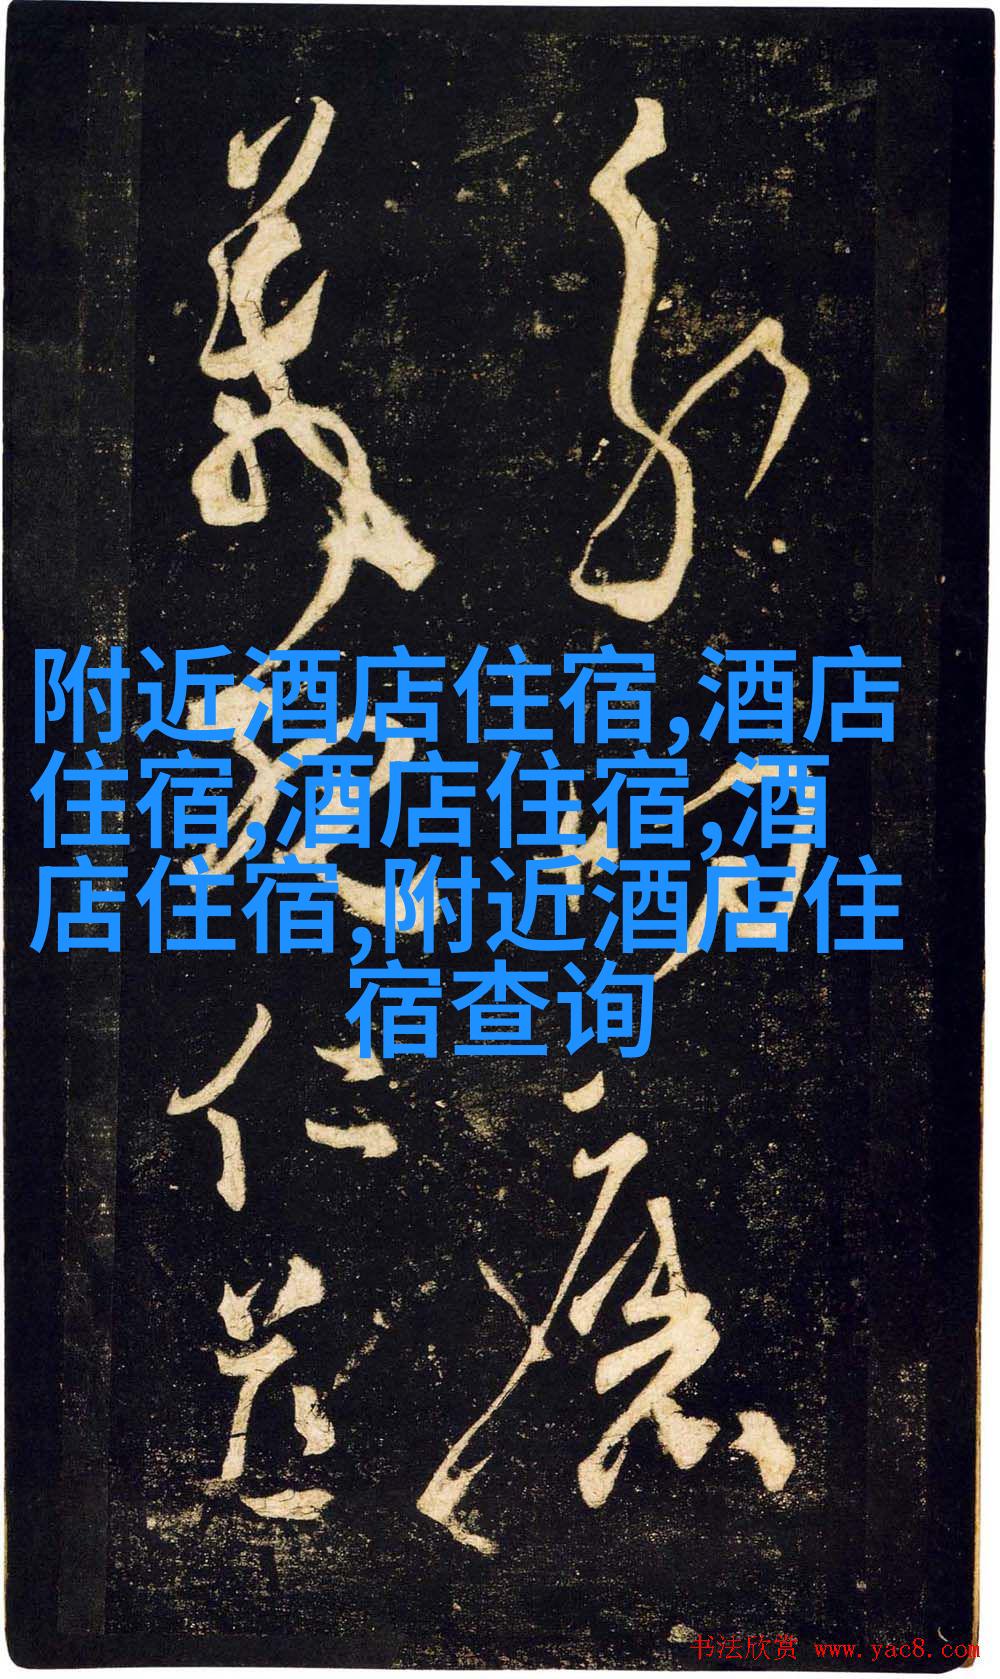 分切磨
箴规仁慈
附近酒店住宿,酒店
住宿,酒店住宿,酒
店住宿,附近酒店住
宿查询
书法欣赏 www.yac8.com